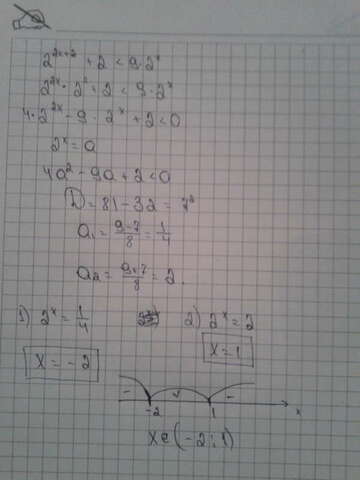 2^{2x+2} + 2 < 9·2^x
2^{2x}·2^2 + 2 < 9·2^x
4·2^{2x} - 9·2^x + 2 < 0
2^x = a
4a^2 - 9a + 2 < 0
D = 81 - 32 = 7^2
a_1 = \frac{9-7}{8} = \frac{1}{4}
a_2 = \frac{9+7}{8} = 2.
1) 2^x = \frac{1}{4} 2) 2^x = 2
x = -2 x = 1
- v -
-2 1 x
x∈(-2;1)